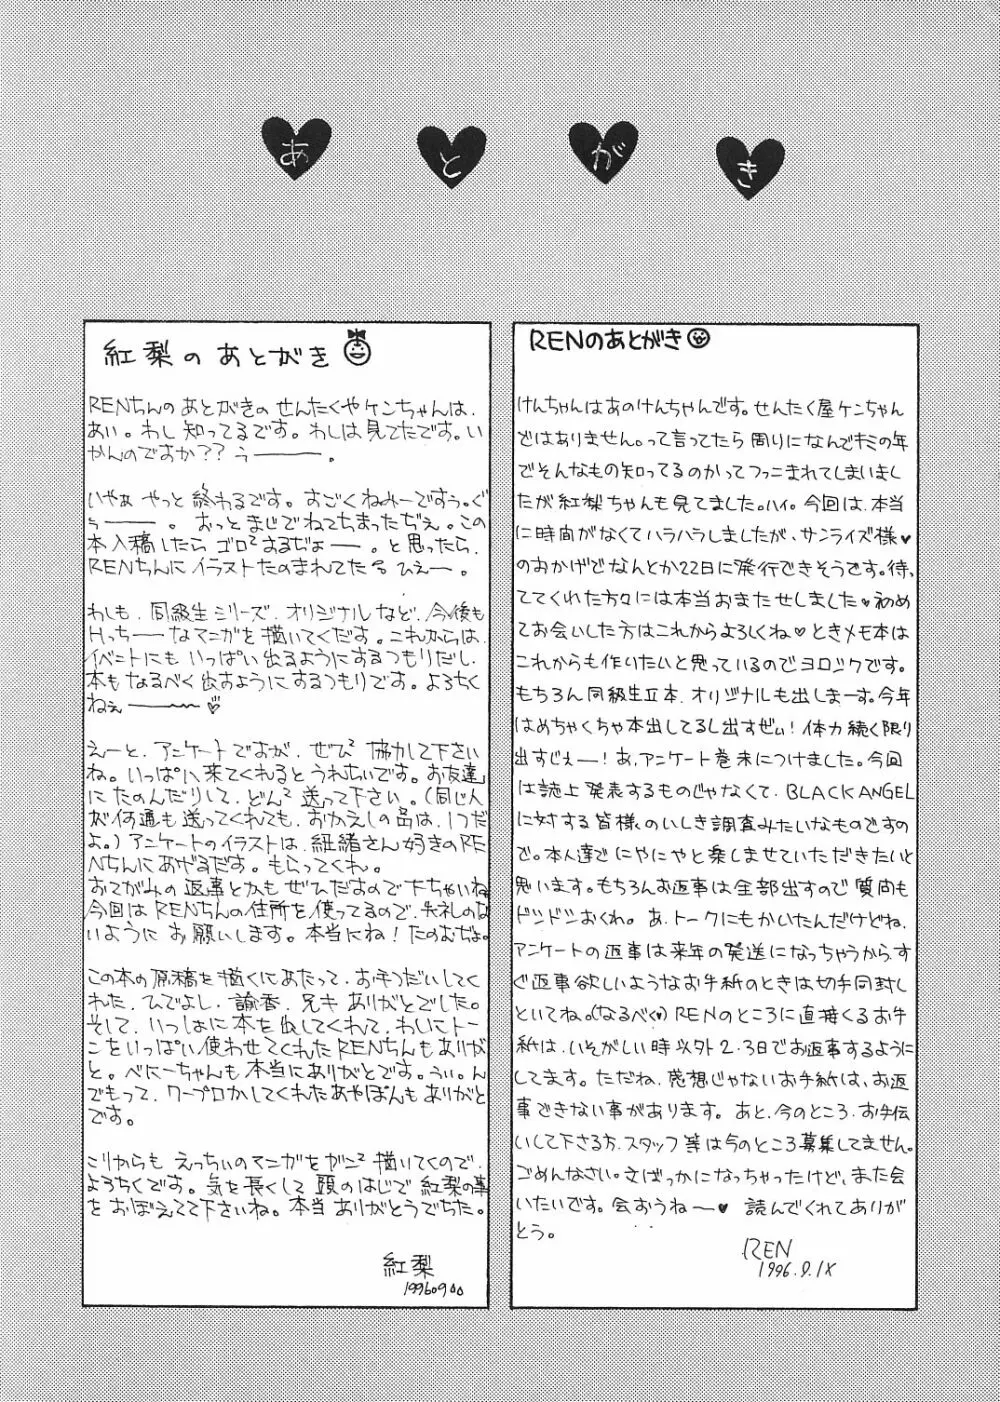 あとがき
紅梨のあとがき
RENちんのあとがきのせんたくやケンちゃんは、
あい。わし知ってるです。わしは見てたです。い
かんのですか??ぅーーー。
いやぁ やっと終わるです。すごくねみーですぅ。ぐ
ぅーーー。おっとまじでねてちまったぢぇ。この
本入稿したらゴロ²するぢょーー。と思ったら、
RENちんにイラストたのまれてたる ひぇーー。
わしも、同級生シリーズ、オリジナルなど、今後も
Hっちーーなマニガを描いてくだす。これからは、
イベニトにもいっぱい出るようにするつもりだし、
本もなるべく出すようにするつもりです。よろちく
ねぇーーー~~
えーと、アニケートですが、ぜひ²協力して下さい
ね。いっぱいに来てくれるとうれちいです。お友達
にたのんだりして、どん²送って下さい。(同じ人
が何通も送ってくれても、おかえしの品は、1つだ
よ。)アニケートのイラストは、紐緒さん好きのRE
Nちんにあげるだす。もらってくれ。
おてがみの返事とかもぜひだすので下ちゃいね
今回はRENちんの住所を使ってるので、失礼のな
いようにお願いします。本当にね!たのむぢょ。
この本の原稿を描くにあたって、お手つだいしてく
れた、ひでよし、諭香、兄キありがとでした。
そして、いっしょに本を出してくれて、わいにトー
こをいっぱい使わせてくれたRENちんもありが
と。べにーちゃんも本当にありがとです。うぃ。ん
でもって、ワープロかしてくれたあやぽんもありがと
です。
こりからも えっちぃのマニガをがニ²描いてくので、
よろちくです。気を長くして頭のはじで紅梨の事
をおぼえてて下さいね。本当ありがとうでちた。
紅梨
RENのあとがき
けんちゃんはあのけんちゃんです。せんたく屋ケンちゃん
ではありません。って言ってたら周りになんでキミの年
でそんなもの知ってるのかってツッこまれてしまいまし
たが紅梨ちゃんも見てました。ハイ。今回は、本当
に時間がなくてハラハラしましたが、サンライズ様♥
のおかげでなんとか22日に発行できそうです。待っ
ててくれた方々には本当おまたせしました♥初め
てお会いした方はこれからよろしくね♥ときメモ本は
これからも作りたいと思っているのでヨロシクです。
もちろん同級生Ⅱ本、オリジナルも出しまーす。今年
はめちゃくちゃ本出してるし出すぜぃ!体力続く限り
出すじぇー!あ、アンケート巻末につけました。今回
は誌上発表するものじゃなくて、BLACK ANGEL
に対する皆様のいしき調査みたいなものですの
で。本人達でにやにやと楽しませていただきたいと
思います。もちろんお返事は全部出すので質問も
ドシドシおくれ。あ、トークにもかいたんだけどね、
アンケートの返事は来年の発送になっちゃうからす
ぐ返事欲しいようなお手紙のときは切手同封し
といてね。(なるべく♥)RENのところに直接くるお手
紙は、いそがしい時以外2、3日でお返事するように
してます。ただね、感想じゃないお手紙は、お返
事できない事があります。あと、今のところ、お手伝
いして下さる方、スタッフ等は今のところ募集してません。
ごめんなさい。文ばっかになっちゃったけど、また会
いたいです。会おうねー♥ 読んでくれてありが
とう。
REN
1996.9.18